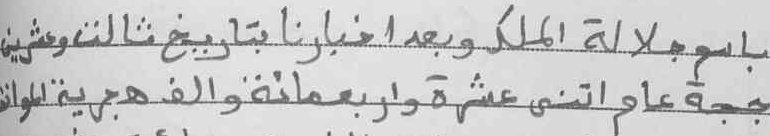 باسم جلالة الملك وبعد اخبارنا بتاريخ ثالث وعشرين
حجة عام اتنى عشرة واربعمائة والف هجرية الموافق